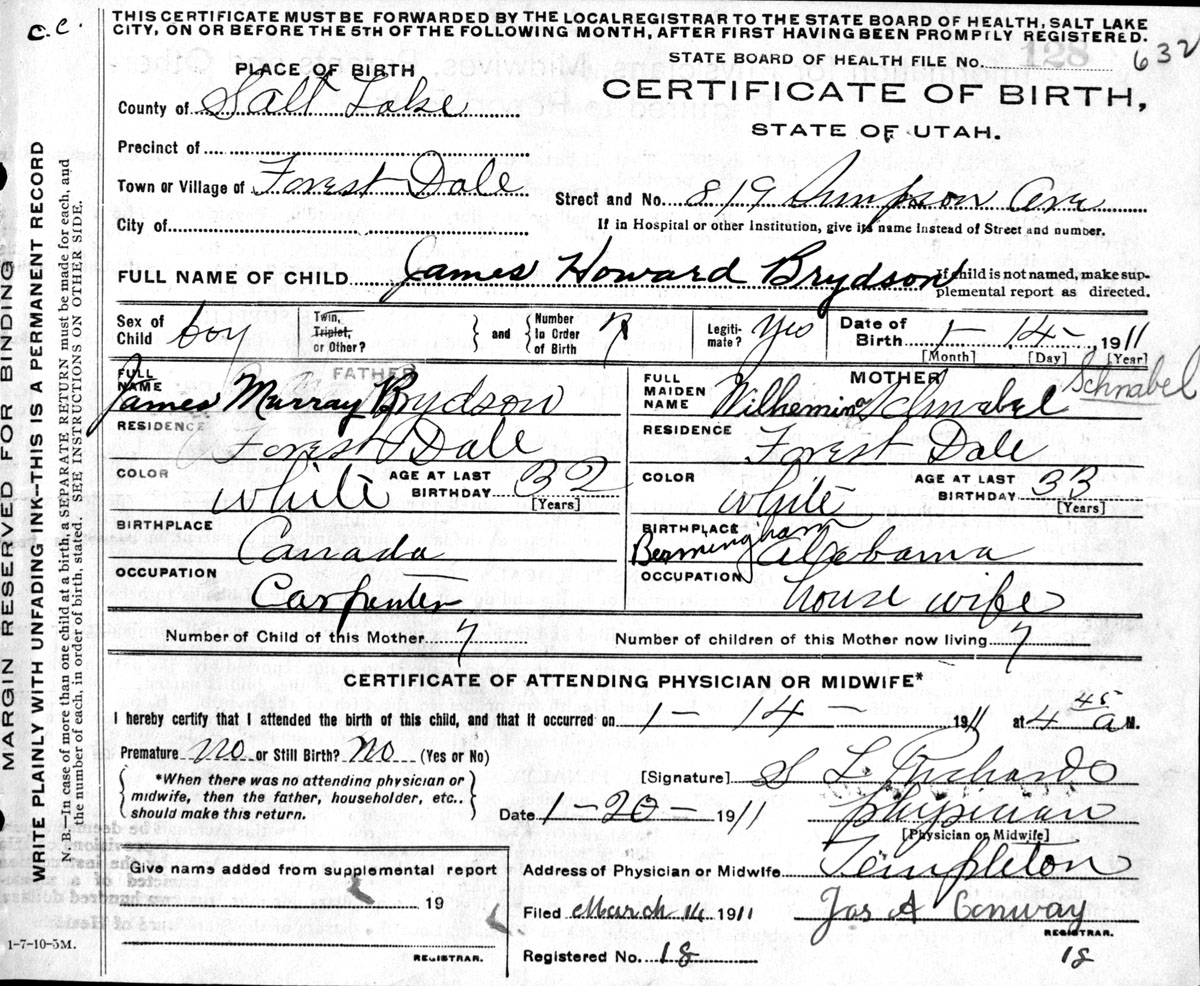 C.C.
THIS CERTIFICATE MUST BE FORWARDED BY THE LOCAL REGISTRAR TO THE STATE BOARD OF HEALTH, SALT LAKE
CITY, ON OR BEFORE THE 5TH OF THE FOLLOWING MONTH, AFTER FIRST HAVING BEEN PROMPTLY REGISTERED.
STATE BOARD OF HEALTH FILE No. 128 632
PLACE OF BIRTH
CERTIFICATE OF BIRTH,
County of Salt Lake
STATE OF UTAH.
Precinct of
Town or Village of Forest Dale
Street and No. 819 Simpson Ave
City of
If in Hospital or other Institution, give its name instead of Street and number.
FULL NAME OF CHILD James Howard Brydson
If child is not named, make sup-
plemental report as directed.
Sex of Child boy
Twin, Triplet, or Other?
and
Number In Order of Birth 7
Legiti-mate? Yes
Date of Birth 1 - 14 - , 1911
[Month] [Day] [Year]
FATHER
FULL NAME James Murray Brydson
MOTHER
FULL MAIDEN NAME Wilhemina Schnabel
Schnabel
RESIDENCE Forest Dale
RESIDENCE Forest Dale
COLOR White AGE AT LAST BIRTHDAY 32 [Years]
COLOR White AGE AT LAST BIRTHDAY 33 [Years]
BIRTHPLACE Canada
BIRTHPLACE Bermingham Alabama
OCCUPATION Carpenter
OCCUPATION house wife
Number of Child of this Mother 7
Number of children of this Mother now living 7
CERTIFICATE OF ATTENDING PHYSICIAN OR MIDWIFE*
I hereby certify that I attended the birth of this child, and that it occurred on 1 - 14 - 1911 at 4 45 a M.
Premature no or Still Birth? No (Yes or No)
*When there was no attending physician or
midwife, then the father, householder, etc..
should make this return.
[Signature] S L Richards
Date 1-20- 1911 physician
[Physician or Midwife]
Address of Physician or Midwife Templeton
Give name added from supplemental report
19
REGISTRAR.
Filed March 14 1911 Jas A Conway
REGISTRAR.
Registered No. 18 18
1-7-10-5M.
MARGIN RESERVED FOR BINDING
WRITE PLAINLY WITH UNFADING INK--THIS IS A PERMANENT RECORD
N. B.—In case of more than one child at a birth, a SEPARATE RETURN must be made for each, and
the number of each, in order of birth, stated. SEE INSTRUCTIONS ON OTHER SIDE.